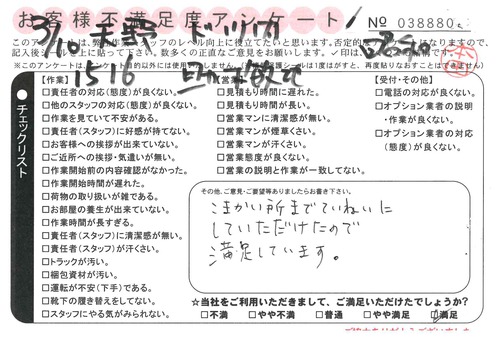 お客様不満足度アンケート
No 038880
3/10
15 16
【作業】
□責任者の対応(態度)が良くない。
□他のスタッフの対応(態度)が良くない。
□作業を見ていて不安がある。
□責任者(スタッフ)に好感が持てない。
□お客様への挨拶が出来ていない。
□ご近所への挨拶・気遣いが無い。
□作業開始前の内容確認がなかった。
□作業開始時間が遅れた。
□荷物の取り扱いが雑である。
□お部屋の養生が出来ていない。
□作業時間が長すぎる。
□責任者(スタッフ)に清潔感が無い。
□責任者(スタッフ)が汗くさい。
□トラックが汚い。
□梱包資材が汚い。
□運転が不安(下手)である。
□靴下の履き替えをしてない。
□スタッフにやる気がみられない。
チェックリスト
【営業】
□見積もり時間に遅れた。
□見積もり時間が長い。
□営業マンに清潔感が無い。
□営業マンが煙草くさい。
□営業マンが汗くさい。
□営業態度が良くない。
□営業の説明と作業が一致してない。
【受付・その他】
□電話の対応が良くない。
□オプション業者の説明・作業が良くない。
□オプション業者の対応(態度)が良くない。
その他、ご意見・ご要望等ありましたらお書き下さい。
細かい所までていねいに
していただけたので
満足しています。
☆当社をご利用いただきまして、ご満足いただけたでしょうか?
□不満 □やや不満 □普通 □やや満足 □満足